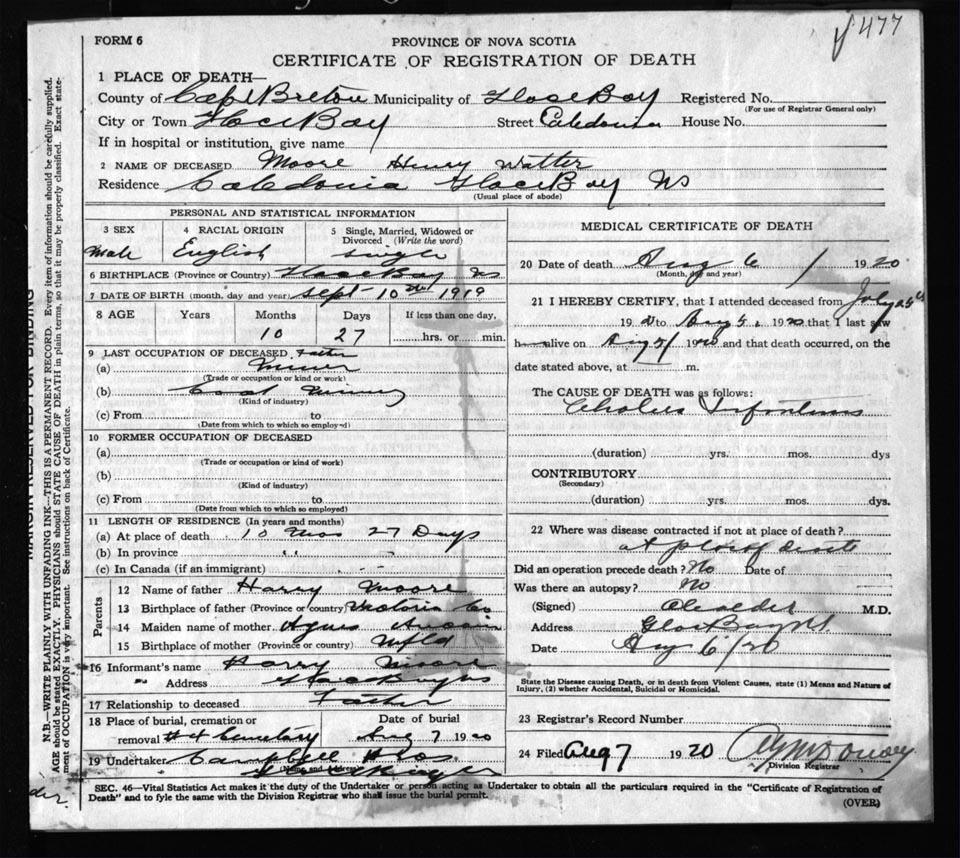 477
FORM 6
PROVINCE OF NOVA SCOTIA
CERTIFICATE OF REGISTRATION OF DEATH
1 PLACE OF DEATH—
County of Cape Breton Municipality of Glace Bay Registered No.
(For use of Registrar General only)
City or Town Glace Bay Street Caledonia House No.
If in hospital or institution, give name
2 NAME OF DECEASED Moore Henry Walter
Residence Caledonia Glace Bay NS
(Usual place of abode)
PERSONAL AND STATISTICAL INFORMATION
3 SEX 4 RACIAL ORIGIN 5 Single, Married, Widowed or Divorced (Write the word)
Male English single
6 BIRTHPLACE (Province or Country) Glace Bay NS
7 DATE OF BIRTH (month, day and year) Sept 10th 1919
8 AGE Years Months Days If less than one day,
10 27 hrs. or min.
9 LAST OCCUPATION OF DECEASED Father
(a) Miner
(Trade or occupation or kind or work)
(b) Coal Mining
(Kind of industry)
(c) From to
(Date from which to which so employed)
10 FORMER OCCUPATION OF DECEASED
(a)
(Trade or occupation or kind of work)
(b)
(Kind of industry)
(c) From to
(Date from which to which so employed)
11 LENGTH OF RESIDENCE (In years and months)
(a) At place of death 10 Mos 27 Days
(b) In province " "
(c) In Canada (if an immigrant)
Parents
12 Name of father Harry Moore
13 Birthplace of father (Province or country) Victoria Co
14 Maiden name of mother Agnes
15 Birthplace of mother (Province or country) Nfld
16 Informant's name Harry Moore
" Address Glace Bay NS
17 Relationship to deceased Father
18 Place of burial, cremation or removal Date of burial
#4 Cemetery Aug 7 1920
19 Undertaker Campbell Bros
(Name and Address)
MEDICAL CERTIFICATE OF DEATH
20 Date of death Aug 6 1920
(Month, day and year)
21 I HEREBY CERTIFY, that I attended deceased from July 25th
1920 to Aug 5, 1920 that I last saw
h alive on Aug 5/ 1920 and that death occurred, on the
date stated above, at m.
The CAUSE OF DEATH was as follows:
Cholera Infantum
(duration) yrs. mos. dys
CONTRIBUTORY
(Secondary)
(duration) yrs. mos. dys.
22 Where was disease contracted if not at place of death?
at place of death
Did an operation precede death? No Date of
Was there an autopsy? No
(Signed) M.D.
Address Glace Bay NS
Date Aug 6/20
State the Disease causing Death, or in death from Violent Causes, state (1) Means and Nature of
Injury, (2) whether Accidental, Suicidal or Homicidal.
23 Registrar's Record Number
24 Filed Aug 7 1920
Division Registrar
SEC. 46—Vital Statistics Act makes it the duty of the Undertaker or person acting as Undertaker to obtain all the particulars required in the "Certificate of Registration of
Death" and to fyle the same with the Division Registrar who shall issue the burial permit.
(OVER)
MARGIN RESERVED FOR BINDING
N.B.—WRITE PLAINLY WITH UNFADING INK—THIS IS A PERMANENT RECORD. Every item of information should be carefully supplied.
AGE should be stated EXACTLY. PHYSICIANS should STATE CAUSE OF DEATH in plain terms, so that it may be properly classified. Exact state-
ment of OCCUPATION is very important. See instructions on back of Certificate.